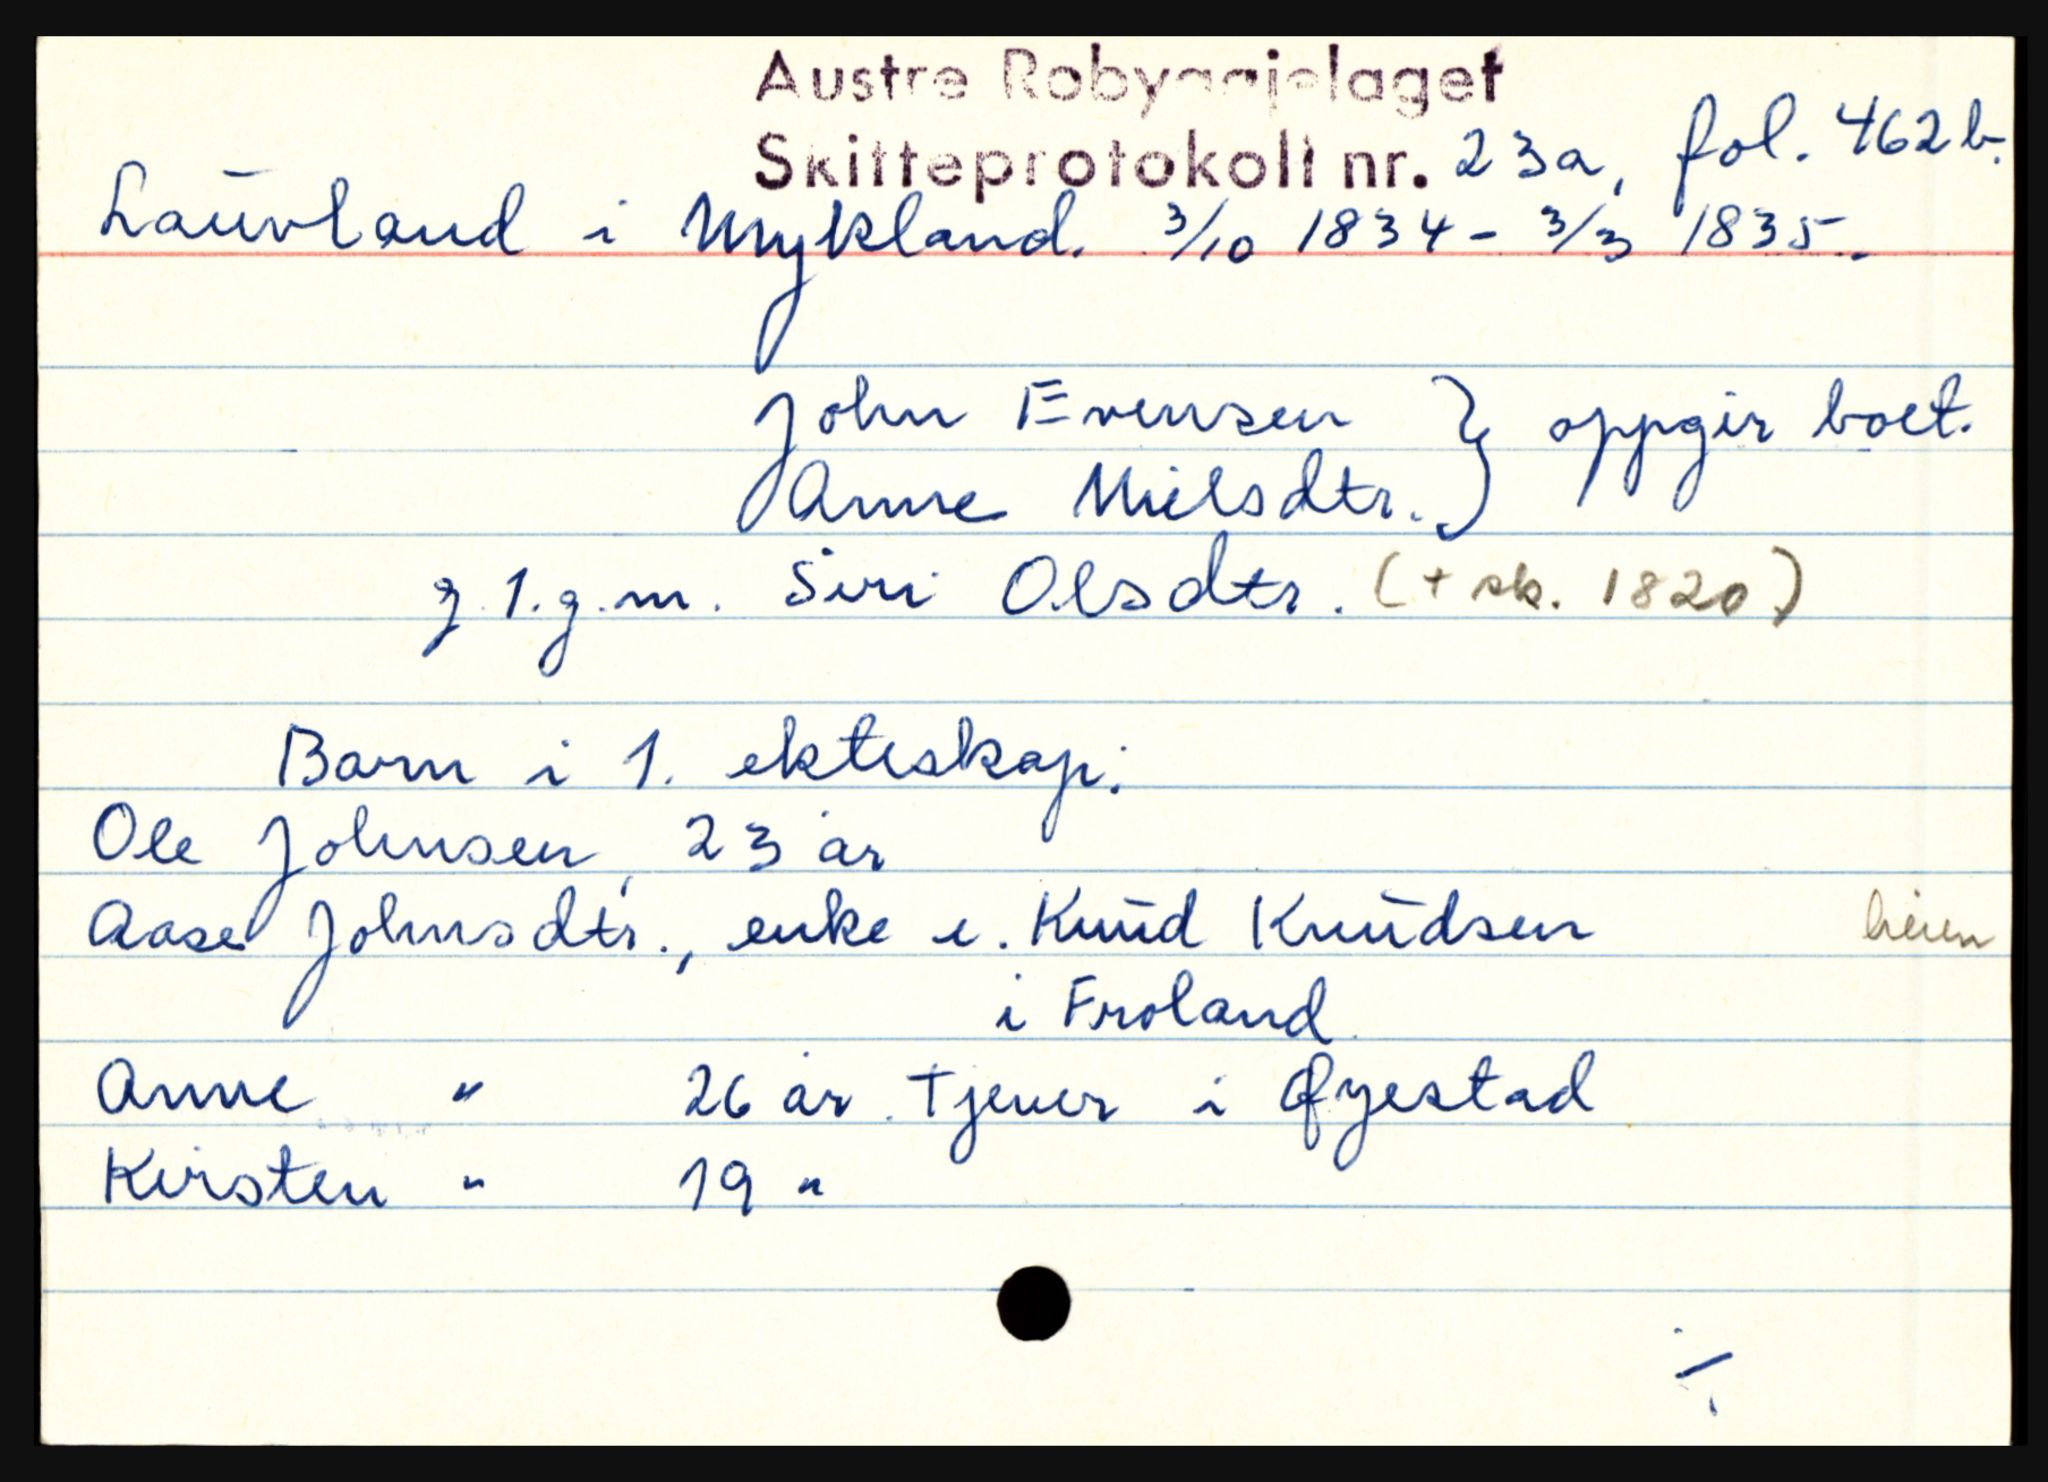 Austre Robyggjelaget
Skifteprotokoll nr. 23a, fol. 462b.
Lauvland i Mykland. 3/10 1834 - 3/3 1835.
John Evensen } oppgir boet.
Anne Nielsdtr.
g. 1. g. m. Siri Olsdtr. (+ sk. 1820)
Barn i 1. ekteskap:
Ole Johnsen, 23 år
Aase Johnsdtr., enke e. Knud Knudsen heien
i Froland.
Anne " 26 år. Tjener i Øyestad
Kirsten " 19 "